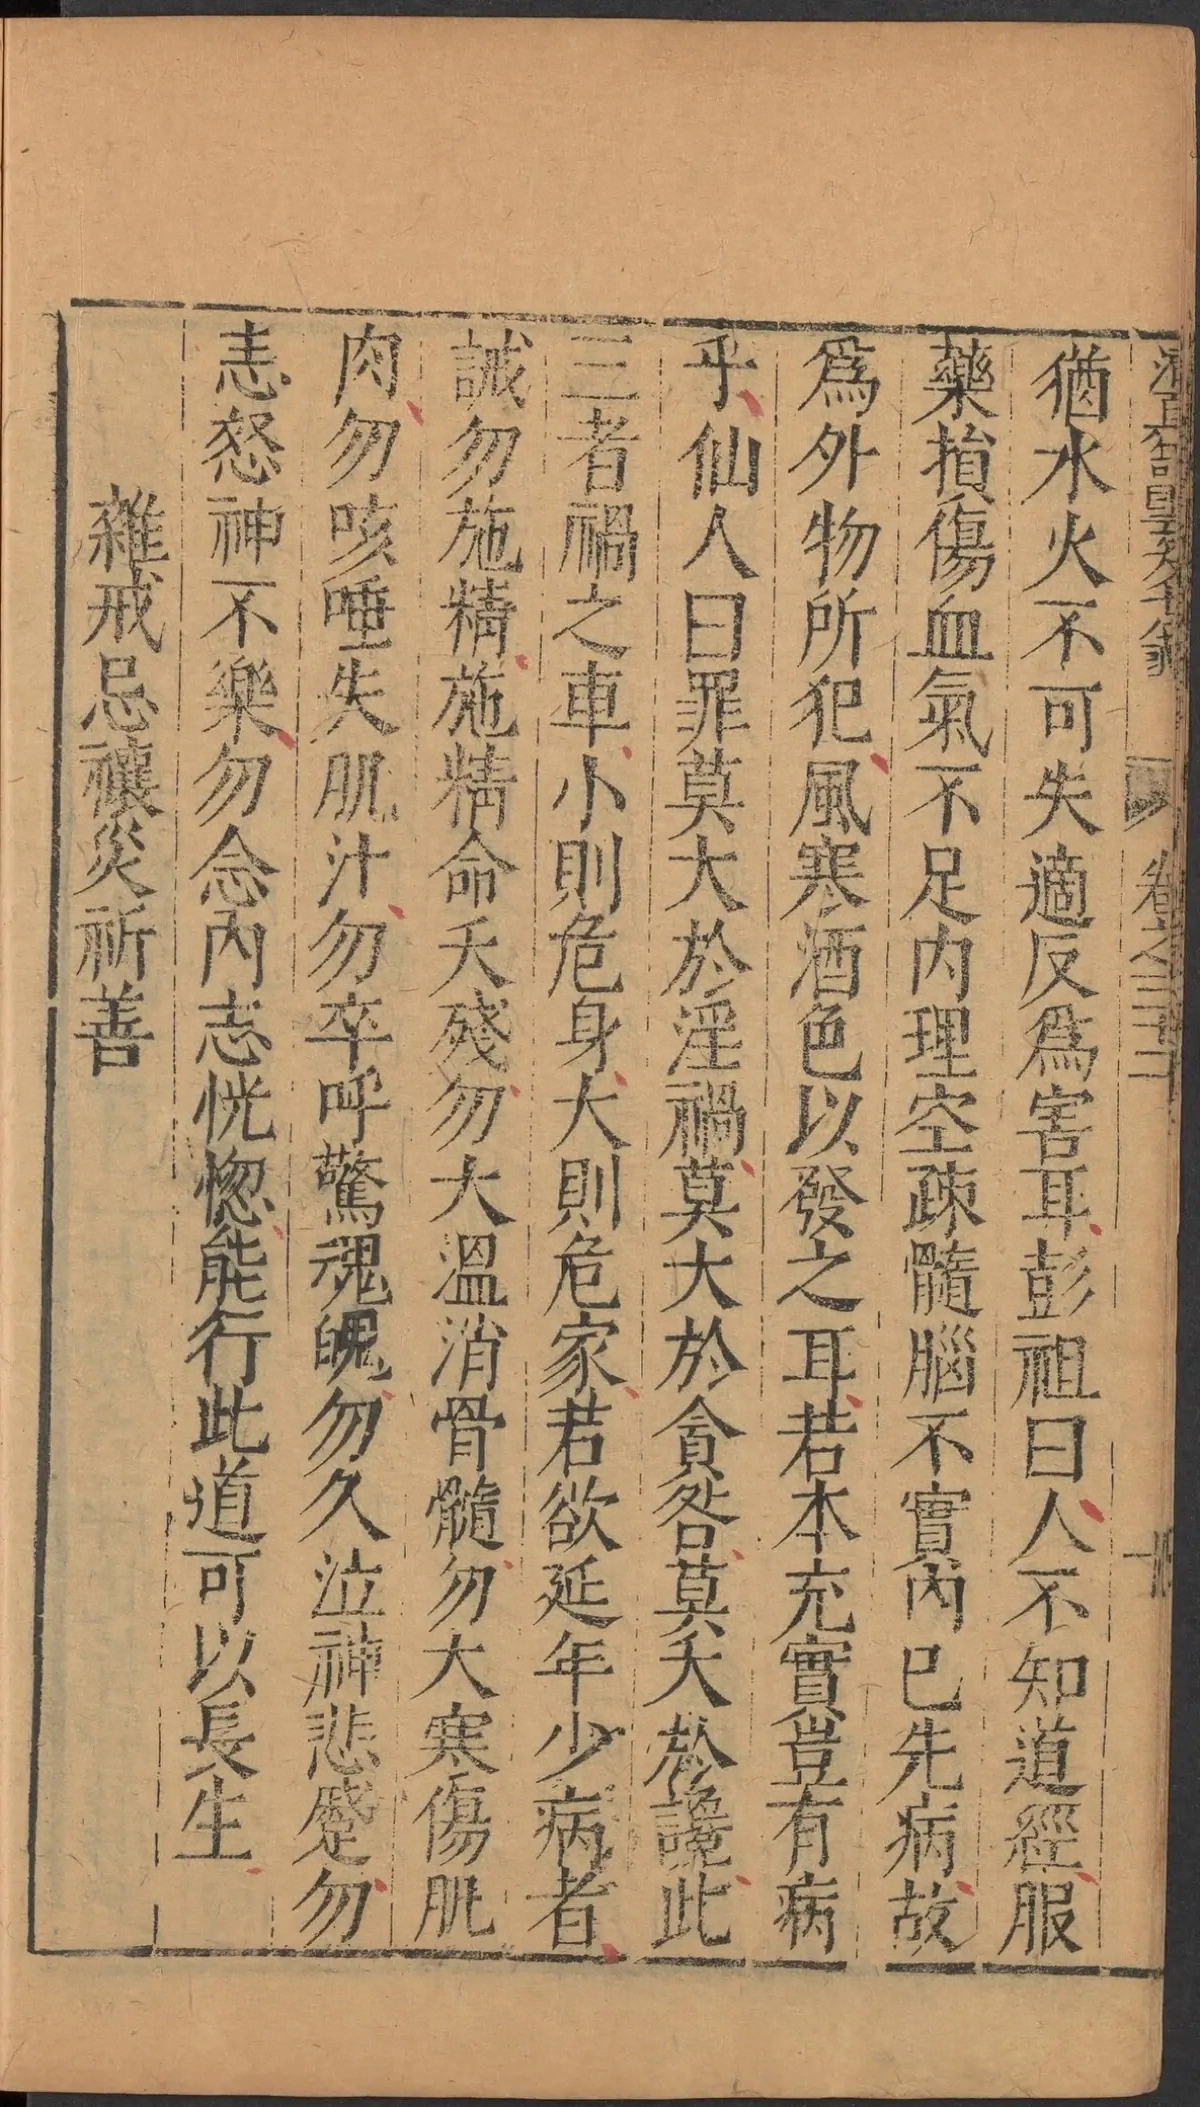 卷之三十二
猶水火不可失適反爲害耳彭祖曰人不知道經服
藥損傷血氣不足内理空疎髓腦不實内已先病故
爲外物所犯風寒酒色以發之耳若本充實豈有病
乎仙人曰罪莫大於淫禍莫大於貪咎莫大於讒此
三者禍之車小則危身大則危家若欲延年少病者
誡勿施精施精命夭殘勿大溫消骨髓勿大寒傷肌
肉勿咳唾失肌汁勿卒呼驚魂魄勿久泣神悲蹙勿
恚怒神不樂勿念内志恍惚能行此道可以長生
雜戒忌禳災祈善